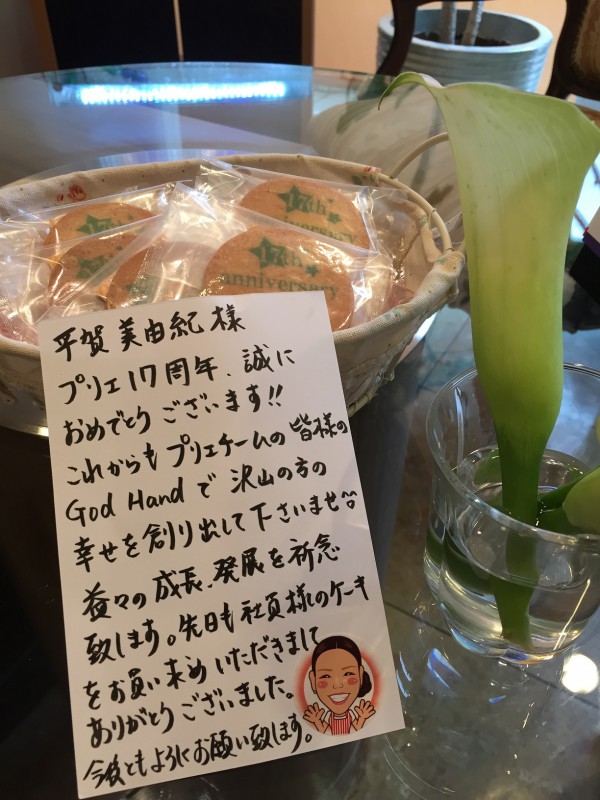 17th
iversary
17th
anniversary
平賀 美由紀 様
プリエ17周年、誠に
おめでとうございます!!
これからもプリエチームの皆様の
God Handで 沢山の方の
幸せを創り出して下さいませ^^
益々の成長、発展を祈念
致します。先日も社員様のケーキ
をお買い求めいただきまして
ありがとうございました。
今後ともようにお願い致します。